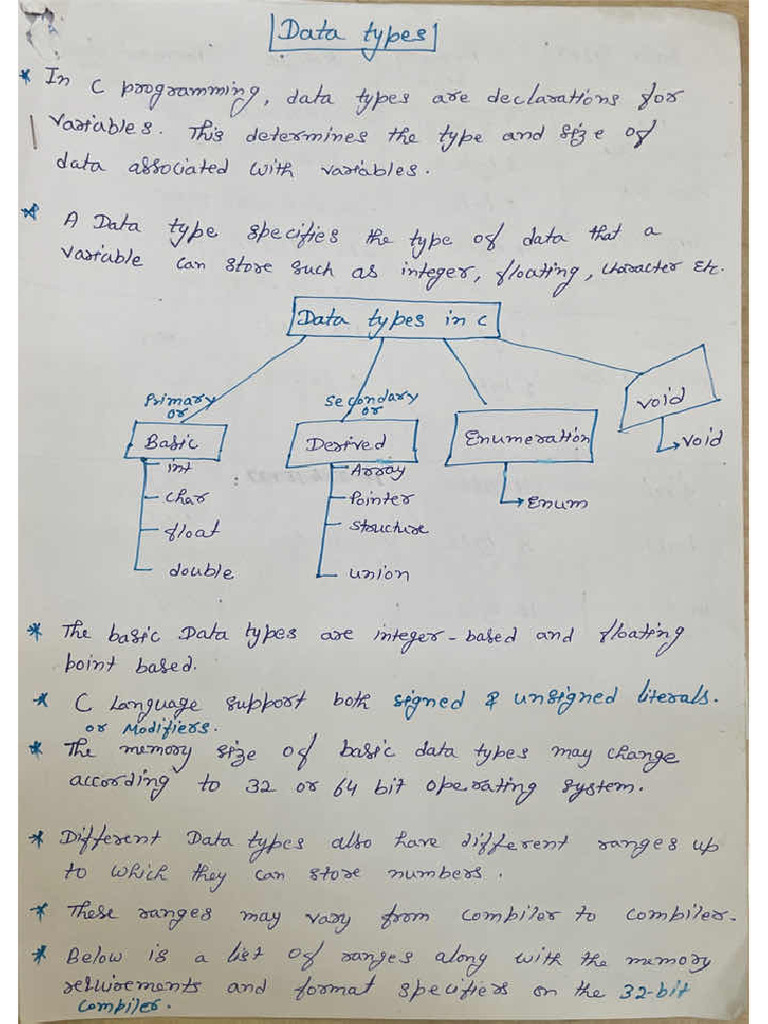 Data types
* In C programming, data types are declarations for
variables. This determines the type and size of
data associated with variables.
* A Data type specifies the type of data that a
variable can store such as integer, floating, character etc.
Data types in C
Primary
or
Basic
int
char
float
double
Secondary
or
Derived
Array
Pointer
Structure
union
Enumeration
Enum
void
void
* The basic Data types are integer-based and floating
point based.
* C Language support both signed & unsigned literals.
or Modifiers.
* The memory size of basic data types may change
according to 32 or 64 bit operating system.
* Different Data types also have different ranges up
to which they can store numbers.
* These ranges may vary from compiler to compiler.
* Below is a list of ranges along with the memory
requirements and format specifiers on the 32-bit
compiler.